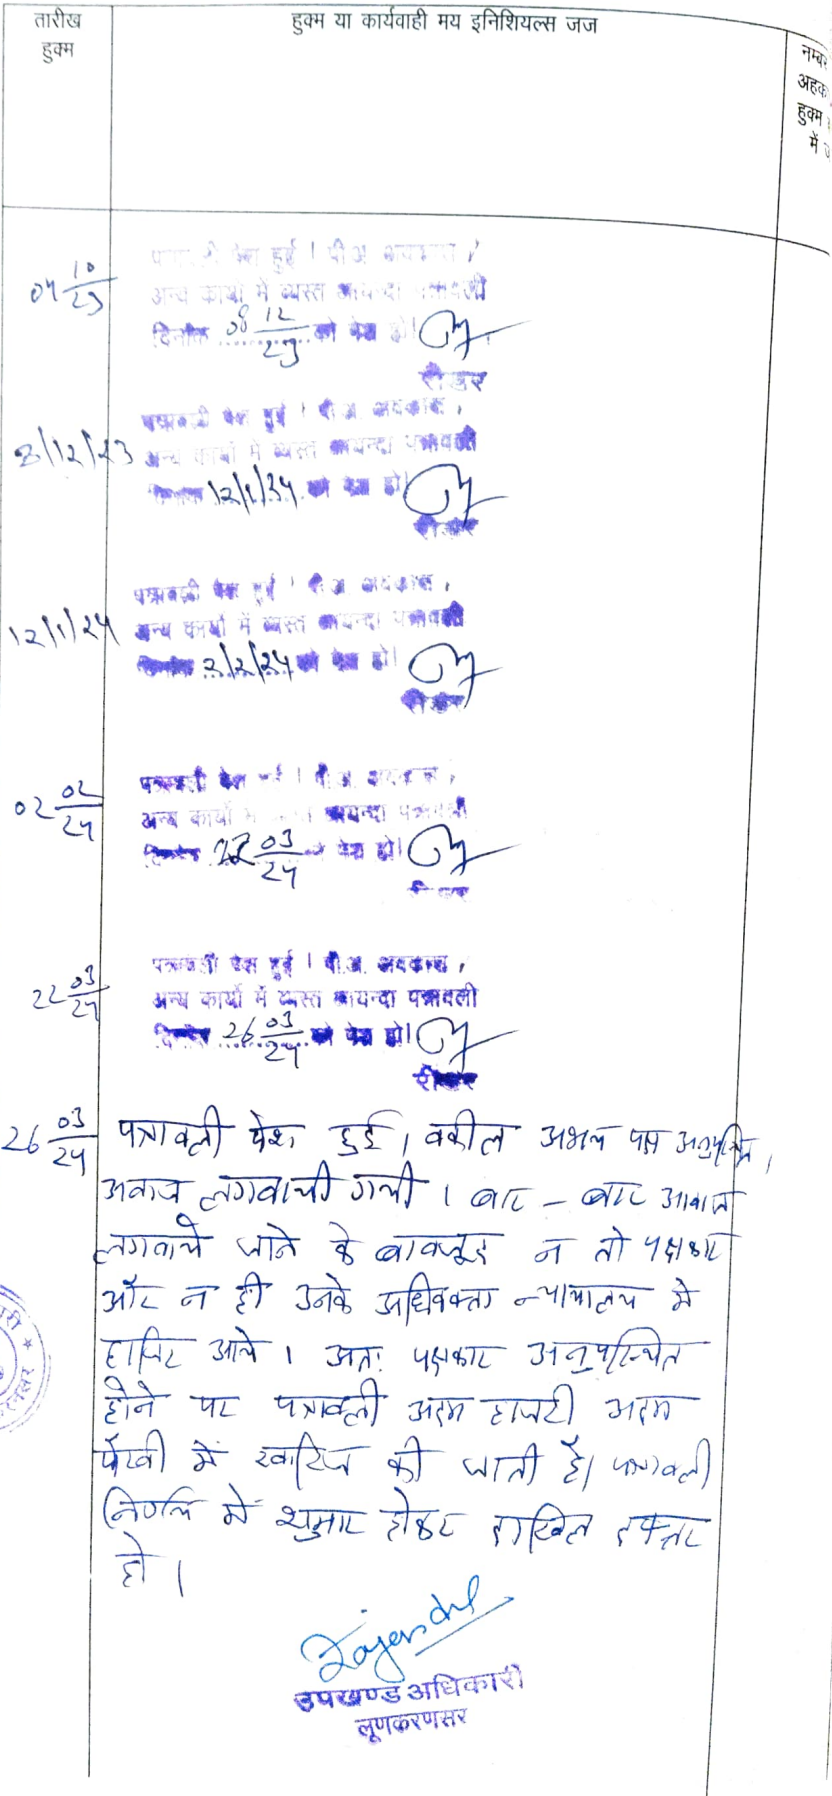 तारीख
हुक्म
हुक्म या कार्यवाही मय इनिशियल्स जज
नम्बर
अहक
हुक्म
में
04 10/23
पत्रावली पेश हुई । पी.अ. अवकाश,
अन्य कार्यों में व्यस्त आयन्दा पत्रावली
दिनांक 08 12/23 को पेश हो।
रीडर
8/12/23
पत्रावली पेश हुई । पी.अ. अवकाश,
अन्य कार्यों में व्यस्त आयन्दा पत्रावली
दिनांक 12/1/34 को पेश हो।
रीडर
12/1/24
पत्रावली पेश हुई । पी.अ. अवकाश,
अन्य कार्यों में व्यस्त आयन्दा पत्रावली
दिनांक 2/2/24 को पेश हो।
रीडर
02 02/24
पत्रावली पेश हुई । पी.अ. अवकाश,
अन्य कार्यों में आयन्दा पत्रावली
दिनांक 22 03/24 को पेश हो।
रीडर
22 03/24
पत्रावली पेश हुई । पी.अ. अवकाश,
अन्य कार्यों में व्यस्त आयन्दा पत्रावली
दिनांक 26 03/24 को पेश हो।
रीडर
26 03/24
पत्रावली पेश हुई। वकील उभय पक्ष अनुपस्थित।
आवाज लगवायी गयी । बार - बार आवाज
लगवाये जाने के बावजूद न तो पक्षकार
और न ही उनके अधिवक्ता न्यायालय मे
हाजिर आये । अतः पक्षकार अनुपस्थित
होने पर पत्रावली अदम हाजरी अदम
पैरवी में खारिज की जाती है। पत्रावली
निर्णित में शुमार होकर दाखिल दफ्तर
हो ।
उपखण्ड अधिकारी
लूणकरणसर